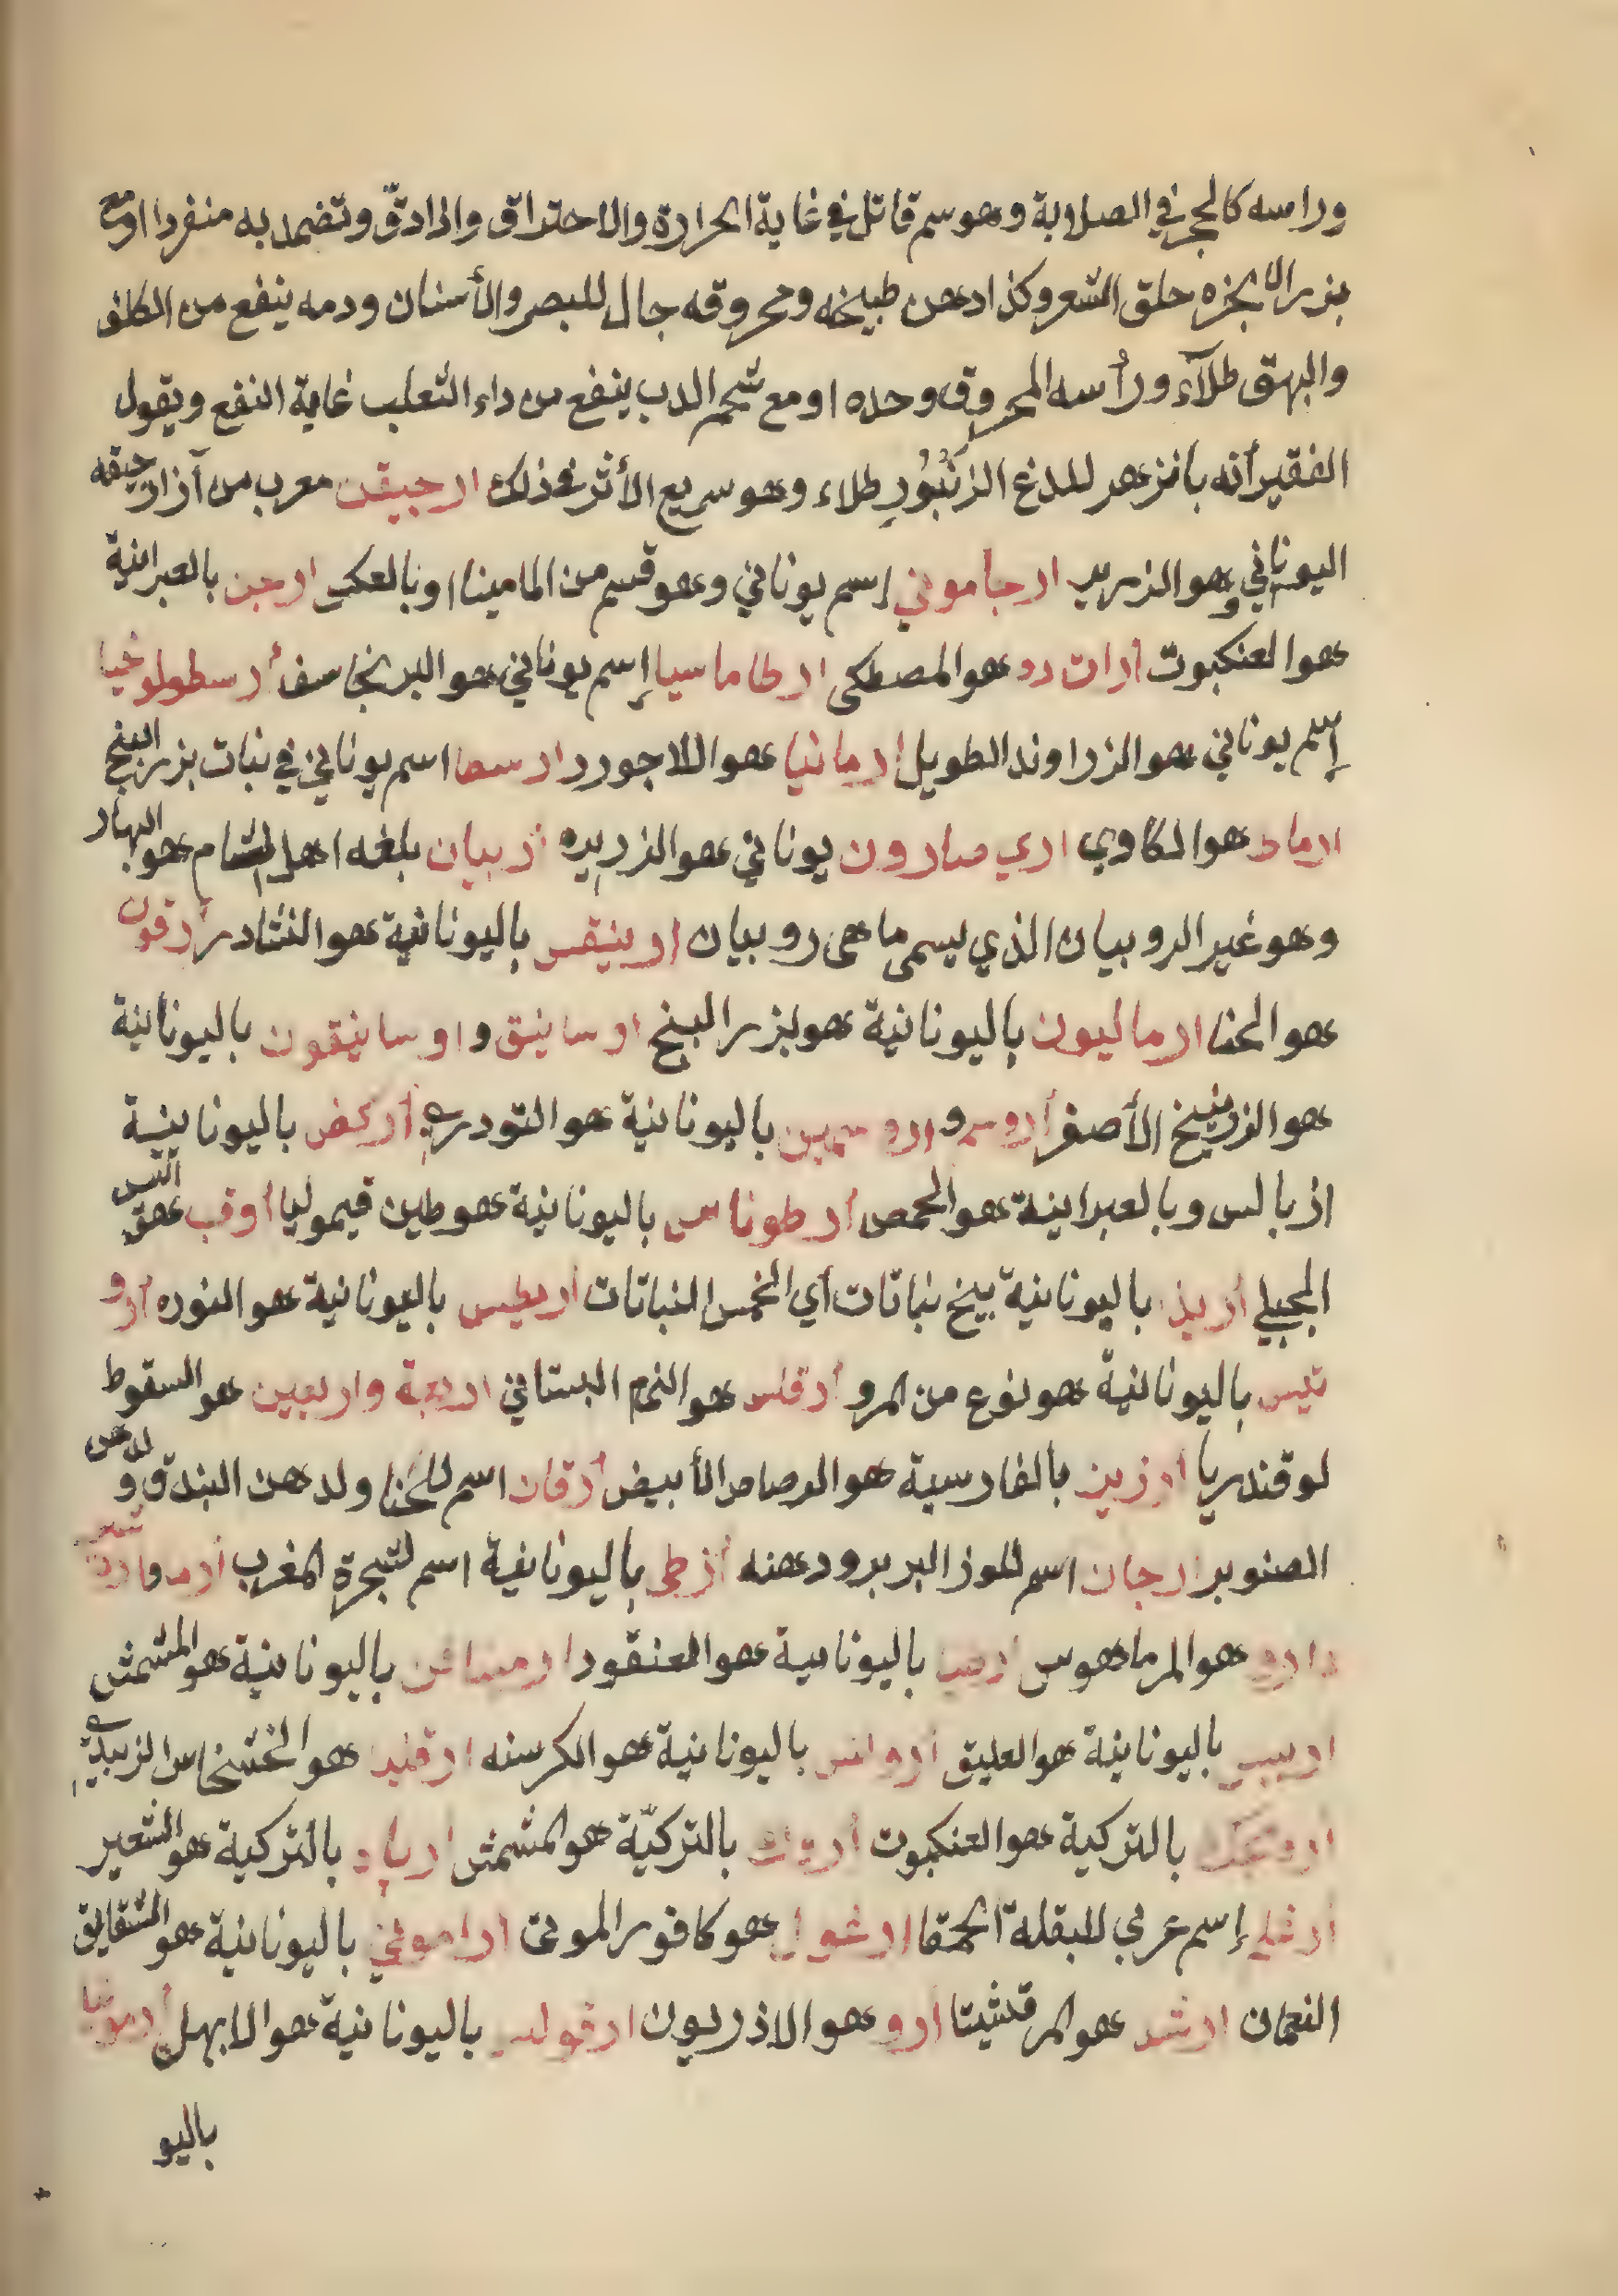 وراسه كالحجر في الصلابة وهو سم قاتل في غاية الحرارة والاحتراق واذا دقّ وتضمد به منفردا او مع
بزر الانجزه حلق الشعر وكذا دهن طبيخه ومحروقه جال للبصر والأسنان ودمه ينفع من الكلف
والبهق طلآء ورأسه المحروق وحده او مع شحم الدب ينفع من داء الثعلب غاية النفع ويقول
الفقير أنه بانزهر للدغ الزنبُور طلاء وهو سريع الأثر في ذلك ارجيقن معرب من آزارجيقه
اليوناني وهو الزرير ارجاموني إسم يوناني وهو قسم من المامينا او بالعكس ارجن بالعبرانية
هو العنكبوت ارات رد هو المصطكى ارطاماسيا إسم يوناني هو البرنجاسف أرسطولوخيا
إسم يوناني هو الزراوند الطويل ارمانيا هو اللاجورد ارسما اسم يوناني في نبات بزر البنج
ارماد هو الكاوي اري صارون يوناني هو الزريره أربيان بلغه اهل الشام هو البهار
وهو غير الروبيان الذي يسمى ماهى روبيان اوينقس باليونانية هو النشادر أرقون
هو الحنا ارماليون باليونانية هو بزر البنج ارسانيق و اوسانيقون باليونانية
هو الزرنيخ الأصفر باليونانية هو التودري أركض باليونانية
از بالس وبالعبرانية هو الحمص أرطوناس باليونانية هو طين قيموليا اوقب هو التيس
الجبلي أريذ باليونانية بيخ نباتات أي الخمس النباتات اريطيس باليونانية هو النوره أرو
تيس باليونانية هو نوع من المرو أرقلس هو النمام البستاني اربعة واربعين هو السقوط
لوقندريا ارزين بالفارسية هو الرصاص الأبيض أرقان اسم للحنا ولدهن البندق و لدهن
الصنوبر ارجان اسم للوز البربر ودهنه أزطى باليونانية اسم لشجرة المغرب
دارو هو المرماهوس باليونانية هو العنقود باليونانية هو المشمش
باليونانية هو العليق باليونانية هو الكرسنه ارقليد هو الخشخاش الزبدي
بالتركية هو العنكبوت أروك بالتركيّة هو المشمش ارپا بالتركية هو الشعير
إسم عربي للبقلة الحمقا ارغول هو كافور الموتى اراموني باليونانية هو الشقايق
النعمان ارشد هو المرقشيتا أرو هو الاذريون ارقولس باليونانية هو الابهل أرمونيا
باليو